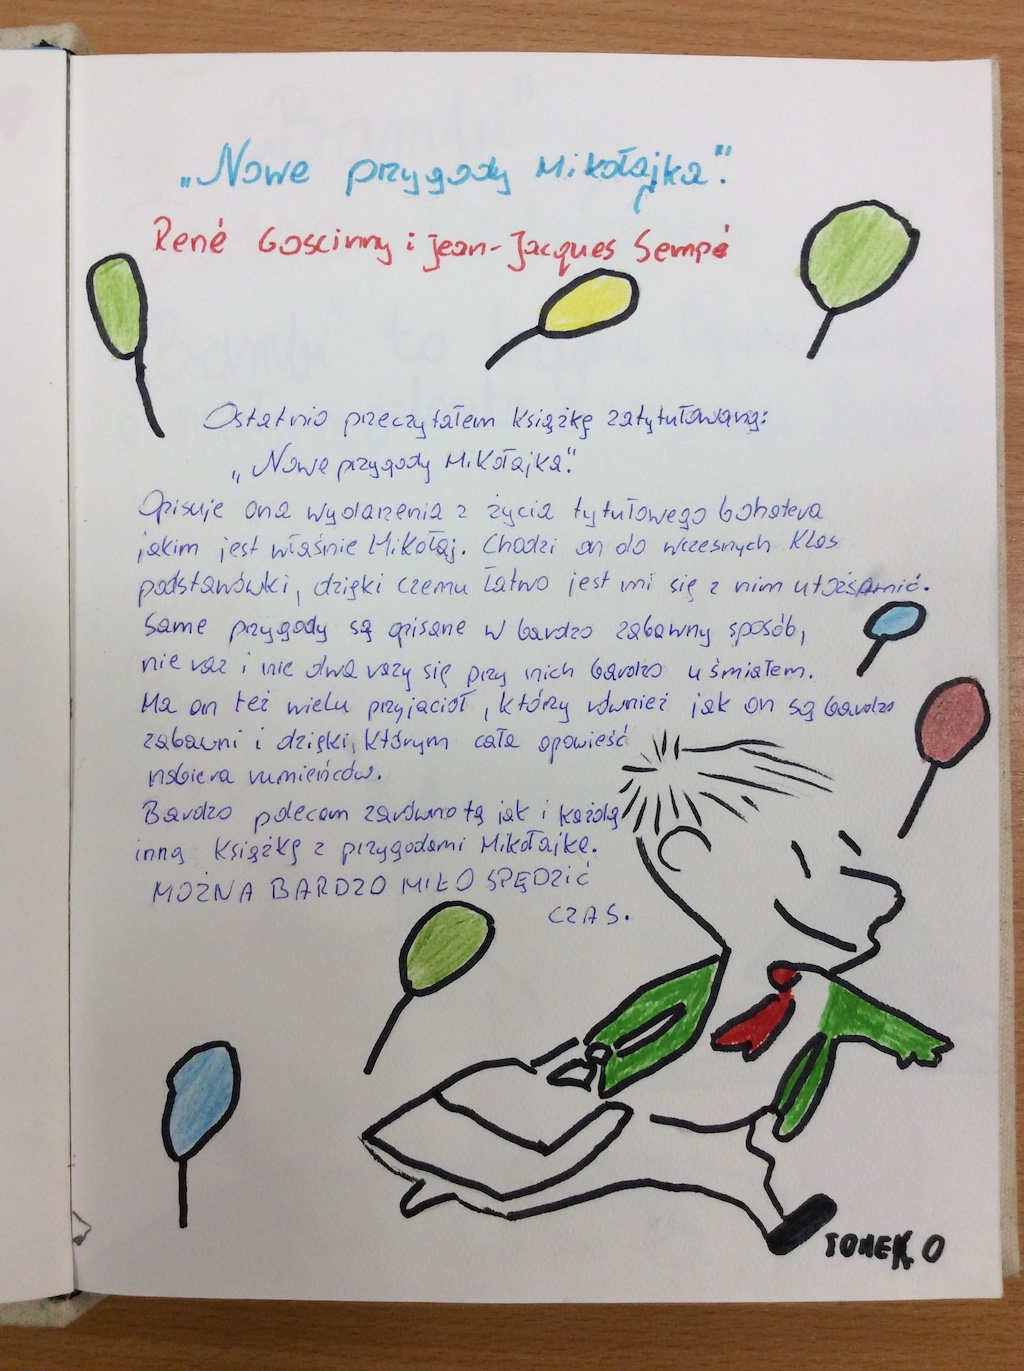 „Nowe przygody Mikołajka”.
René Goscinny i Jean-Jacques Sempé
Ostatnio przeczytałem książkę zatytułowaną:
„Nowe przygody Mikołajka”.
Opisuje ona wydarzenia z życia tytułowego bohatera
jakim jest właśnie Mikołaj. Chodzi on do wczesnych klas
podstawówki, dzięki czemu łatwo jest mi się z nim utożsamić.
Same przygody są opisane w bardzo zabawny sposób,
nie raz i nie dwa razy się przy nich bardzo uśmiałem.
Ma on też wielu przyjaciół, którzy również jak on są bardzo
zabawni i dzięki, którym cała opowieść
nabiera rumieńców.
Bardzo polecam zarówno tą jak i każdą
inną książkę z przygodami Mikołajka.
MOŻNA BARDZO MIŁO SPĘDZIĆ
CZAS.
TOMEK O